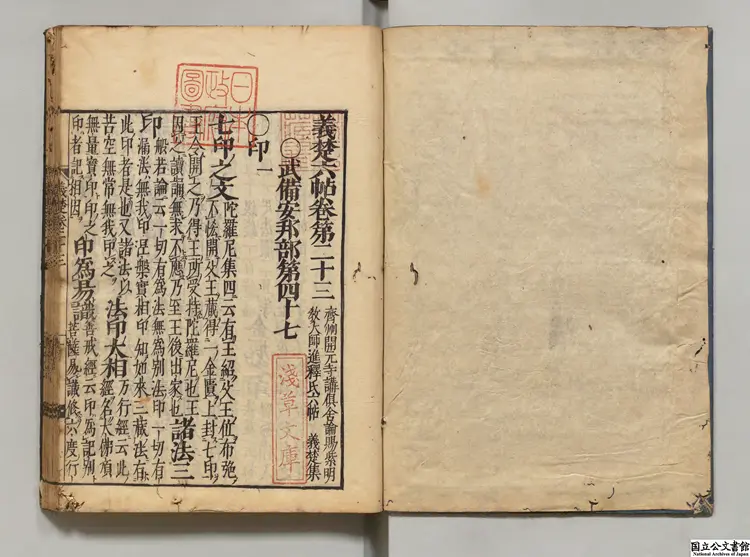 義楚六帖卷第二十三
齊州開元寺講俱舍論賜紫明
敎大師進釋氏六帖 義楚集
〇武備安邦部第四十七
〇印一
七印之文
陀羅尼集四云有王紹父王位布施
不恡開父王藏得一金匱上封七印
王令開之乃得王所受持陀羅尼也王
因之讀誦無求不應乃至王後出家也
諸法三
印
般若論云一切有爲法無爲別法印一切有
漏法無我印涅槃實相印知如來三藏法有
此印者是也又諸法以
苦空無常無我印之
法印大相
方行經云此
經名大佛頂
無量實印印之
印者記相因
印爲易識
善戒經云印爲記別
菩薩易識修六度行
日本
政府
圖書
淺草文庫
国立公文書館
National Archives of Japan